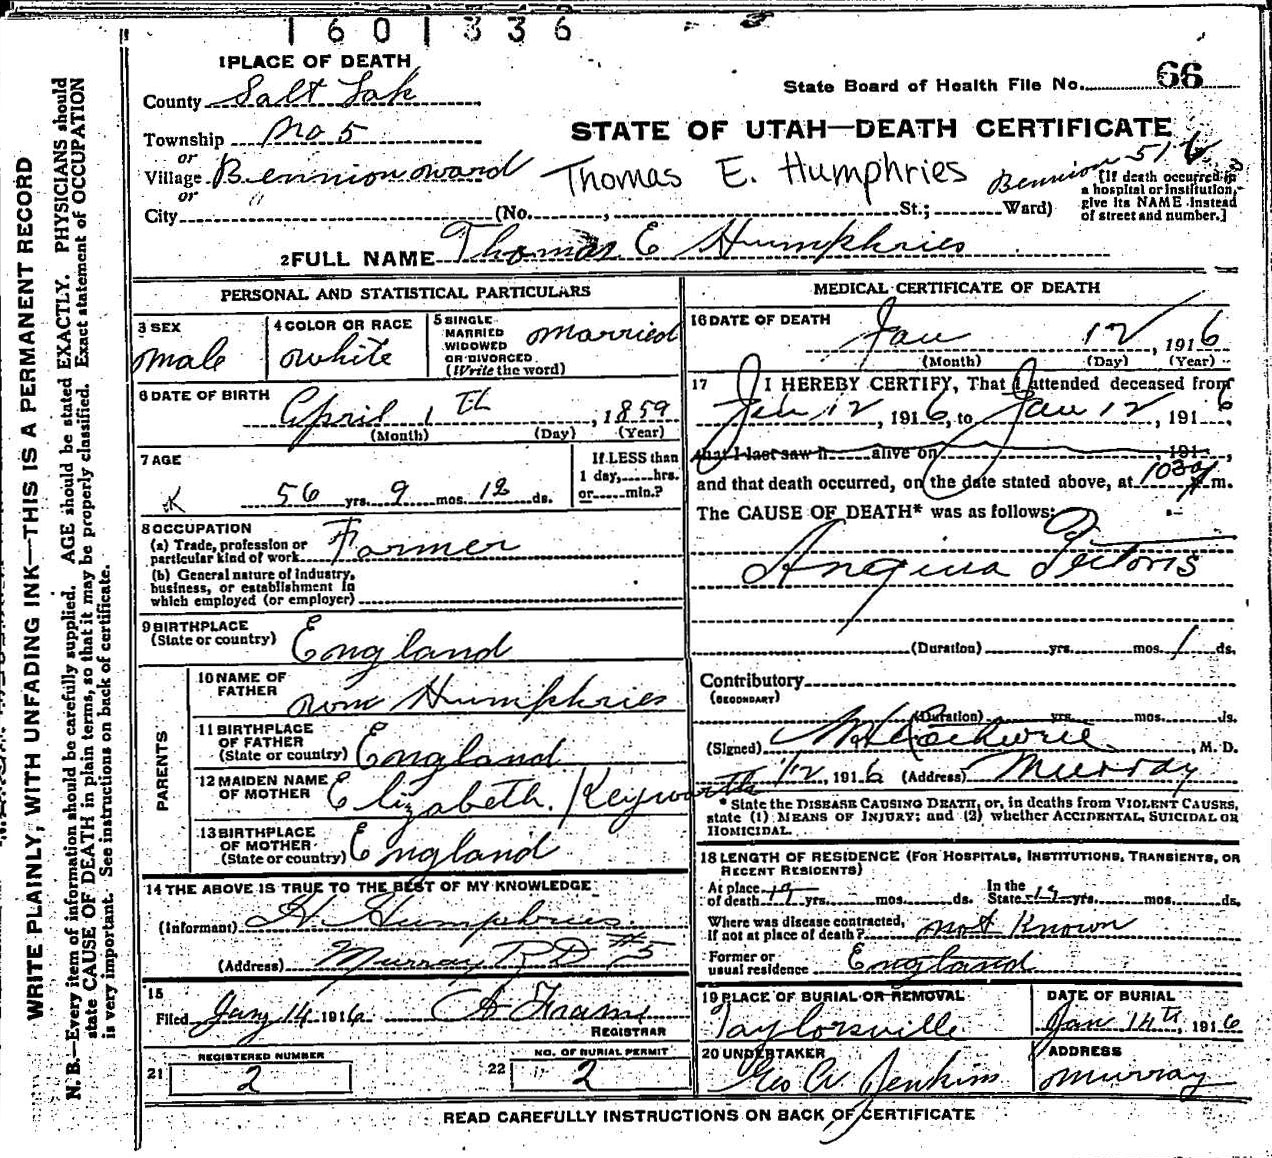 1601336
1 PLACE OF DEATH
State Board of Health File No. 66
County Salt Lak
STATE OF UTAH—DEATH CERTIFICATE
Township No 5
or
Village Bennion ward Thomas E. Humphries Bennion 516
or
City " (No. , St.; Ward)
[If death occurred in
a hospital or institution,
give its NAME instead
of street and number.]
2 FULL NAME Thomas E Humphries
PERSONAL AND STATISTICAL PARTICULARS
3 SEX
male
4 COLOR OR RACE
white
5 SINGLE
MARRIED
WIDOWED
OR DIVORCED
(Write the word)
married
6 DATE OF BIRTH
April 1th, 1859
(Month) (Day) (Year)
7 AGE
56 yrs. 9 mos. 12 ds.
If LESS than
1 day, hrs.
or min.?
8 OCCUPATION
(a) Trade, profession or
particular kind of work Farmer
(b) General nature of industry,
business, or establishment in
which employed (or employer)
9 BIRTHPLACE
(State or country) England
PARENTS
10 NAME OF
FATHER Wm Humphries
11 BIRTHPLACE
OF FATHER
(State or country) England
12 MAIDEN NAME
OF MOTHER Elizabeth Keyworth
13 BIRTHPLACE
OF MOTHER
(State or country) England
14 THE ABOVE IS TRUE TO THE BEST OF MY KNOWLEDGE
(Informant) H. Humphries
(Address) Murray RD #5
15
Filed Jany 14 1916
REGISTRAR
REGISTERED NUMBER
21 2
NO. OF BURIAL PERMIT
22 2
MEDICAL CERTIFICATE OF DEATH
16 DATE OF DEATH
Jan 12, 1916
(Month) (Day) (Year)
17 I HEREBY CERTIFY, That I attended deceased from
Jan 12, 1916, to Jan 12, 1916,
that I last saw h alive on , 191 ,
and that death occurred, on the date stated above, at 1030 m.
The CAUSE OF DEATH* was as follows:
Angina Pectoris
(Duration) yrs. mos. 1 ds.
Contributory
(SECONDARY)
(Duration) yrs. mos. ds.
(Signed) , M. D.
1/12, 1916 (Address) Murray
* State the DISEASE CAUSING DEATH, or, in deaths from VIOLENT CAUSES,
state (1) MEANS OF INJURY; and (2) whether ACCIDENTAL, SUICIDAL OR
HOMICIDAL.
18 LENGTH OF RESIDENCE (FOR HOSPITALS, INSTITUTIONS, TRANSIENTS, OR
RECENT RESIDENTS)
At place
of death 19 yrs. mos. ds.
In the
State 19 yrs. mos. ds.
Where was disease contracted,
If not at place of death? not Known
Former or
usual residence England
19 PLACE OF BURIAL OR REMOVAL
Taylorsville
DATE OF BURIAL
Jan 14th, 1916
20 UNDERTAKER
Geo W. Jenkins
ADDRESS
Murray
READ CAREFULLY INSTRUCTIONS ON BACK OF CERTIFICATE
WRITE PLAINLY, WITH UNFADING INK—THIS IS A PERMANENT RECORD
N. B.—Every item of information should be carefully supplied. AGE should be stated EXACTLY. PHYSICIANS should
state CAUSE OF DEATH in plain terms, so that it may be properly classified. Exact statement of OCCUPATION
is very important. See instructions on back of certificate.